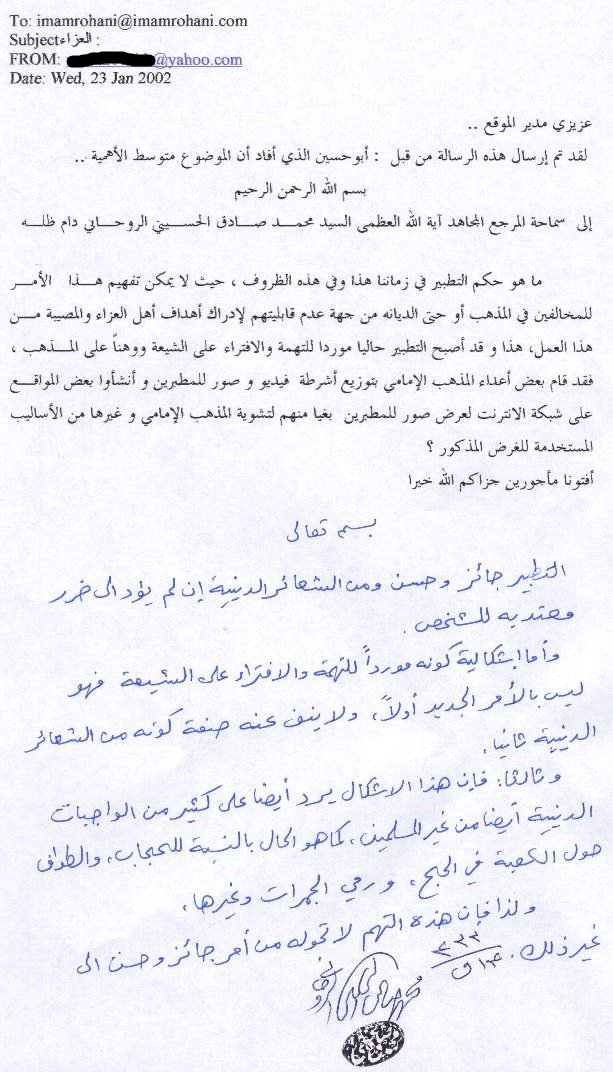 To: imamrohani@imamrohani.com
Subjectالعزاء :
FROM: @yahoo.com
Date: Wed, 23 Jan 2002
عزيزي مدير الموقع ..
لقد تم إرسال هذه الرسالة من قبل : أبوحسين الذي أفاد أن الموضوع متوسط الأهمية ..
بسم الله الرحمن الرحيم
إلى سماحة المرجع المجاهد آية الله العظمى السيد محمد صادق الحسيني الروحاني دام ظله
ما هو حكم التطبير في زماننا هذا وفي هذه الظروف ، حيث لا يمكن تفهيم هذا الأمر
للمخالفين في المذهب أو حتى الديانه من جهة عدم قابليتهم لإدراك أهداف أهل العزاء والمصيبة من
هذا العمل، هذا و قد أصبح التطبير حاليا موردا للتهمة والافتراء على الشيعة ووهناً على المذهب ،
فقد قام بعض أعداء المذهب الإمامي بتوزيع أشرطة فيديو و صور للمطبرين و أنشأوا بعض المواقع
على شبكة الانترنت لعرض صور للمطبرين بغيا منهم لتشوية المذهب الإمامي و غيرها من الأساليب
المستخدمة للغرض المذكور ؟
أفتونا مأجورين جزاكم الله خيرا
بسمه تعالى
التطبير جائز وحسن ومن الشعائر الدينية إن لم يؤد الى ضرر
معتد به للشخص .
وأما إشكالية كونه مورداً للتهمة والافتراء على الشيعة فهو
ليس بالأمر الجديد أولاً، ولا ينفي عنه صفة كونه من الشعائر
الدينية ثانيا،
وثالثا: فإن هذا الاشكال يرد أيضا على كثير من الواجبات
الدينية أيضا من غير المسلمين، كما هو الحال بالنسبة للحجاب، والطواف
حول الكعبة في الحج، ورمي الجمرات وغيرها،
ولذا فإن هذه التهم لا تحوله من أمر جائز وحسن الى
غير ذلك.